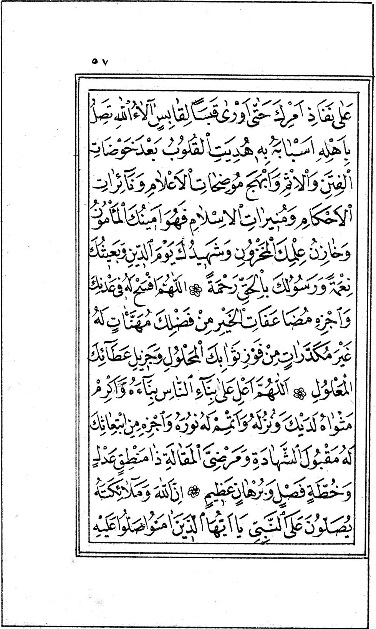 ٥٧
عَلَى نَفَاذِ أَمْرِكَ حَتَّى أَوْرَى قَبَسًا لِقَابِسٍ آلَاءُ اللَّهِ تَصِلُ
بِأَهْلِهِ أَسْبَابَهُ بِهِ هُدِيَتِ الْقُلُوبُ بَعْدَ خَوْضَاتِ
الْفِتَنِ وَالْإِثْمِ وَأَبْهَجَ مُوضِحَاتِ الْأَعْلَامِ وَنَائِرَاتِ
الْأَحْكَامِ وَمُنِيرَاتِ الْإِسْلَامِ فَهُوَ أَمِينُكَ الْمَأْمُونُ
وَخَازِنُ عِلْمِكَ الْمَخْزُونِ وَشَهِيدُكَ يَوْمَ الدِّينِ وَبَعِيثُكَ
نِعْمَةً وَرَسُولُكَ بِالْحَقِّ رَحْمَةً ❁ اللَّهُمَّ افْسَحْ لَهُ فِي عَدْنِكَ
وَاجْزِهِ مُضَاعَفَاتِ الْخَيْرِ مِنْ فَضْلِكَ مُهَنَّآتٍ لَهُ
غَيْرَ مُكَدَّرَاتٍ مِنْ فَوْزِ ثَوَابِكَ الْمَحْلُولِ وَجَزِيلِ عَطَائِكَ
الْمَعْلُولِ ❁ اللَّهُمَّ أَعْلِ عَلَى بِنَاءِ النَّاسِ بِنَاءَهُ وَأَكْرِمْ
مَثْوَاهُ لَدَيْكَ وَنُزُلَهُ وَأَتْمِمْ لَهُ نُورَهُ وَاجْزِهِ مِنِ ابْتِعَاثِكَ
لَهُ مَقْبُولَ الشَّهَادَةِ وَمَرْضِيَّ الْمَقَالَةِ ذَا مَنْطِقٍ عَدْلٍ
وَخُطَّةٍ فَصْلٍ وَبُرْهَانٍ عَظِيمٍ ❁ إِنَّ اللَّهَ وَمَلَائِكَتَهُ
يُصَلُّونَ عَلَى النَّبِيِّ يَا أَيُّهَا الَّذِينَ آمَنُوا صَلُّوا عَلَيْهِ